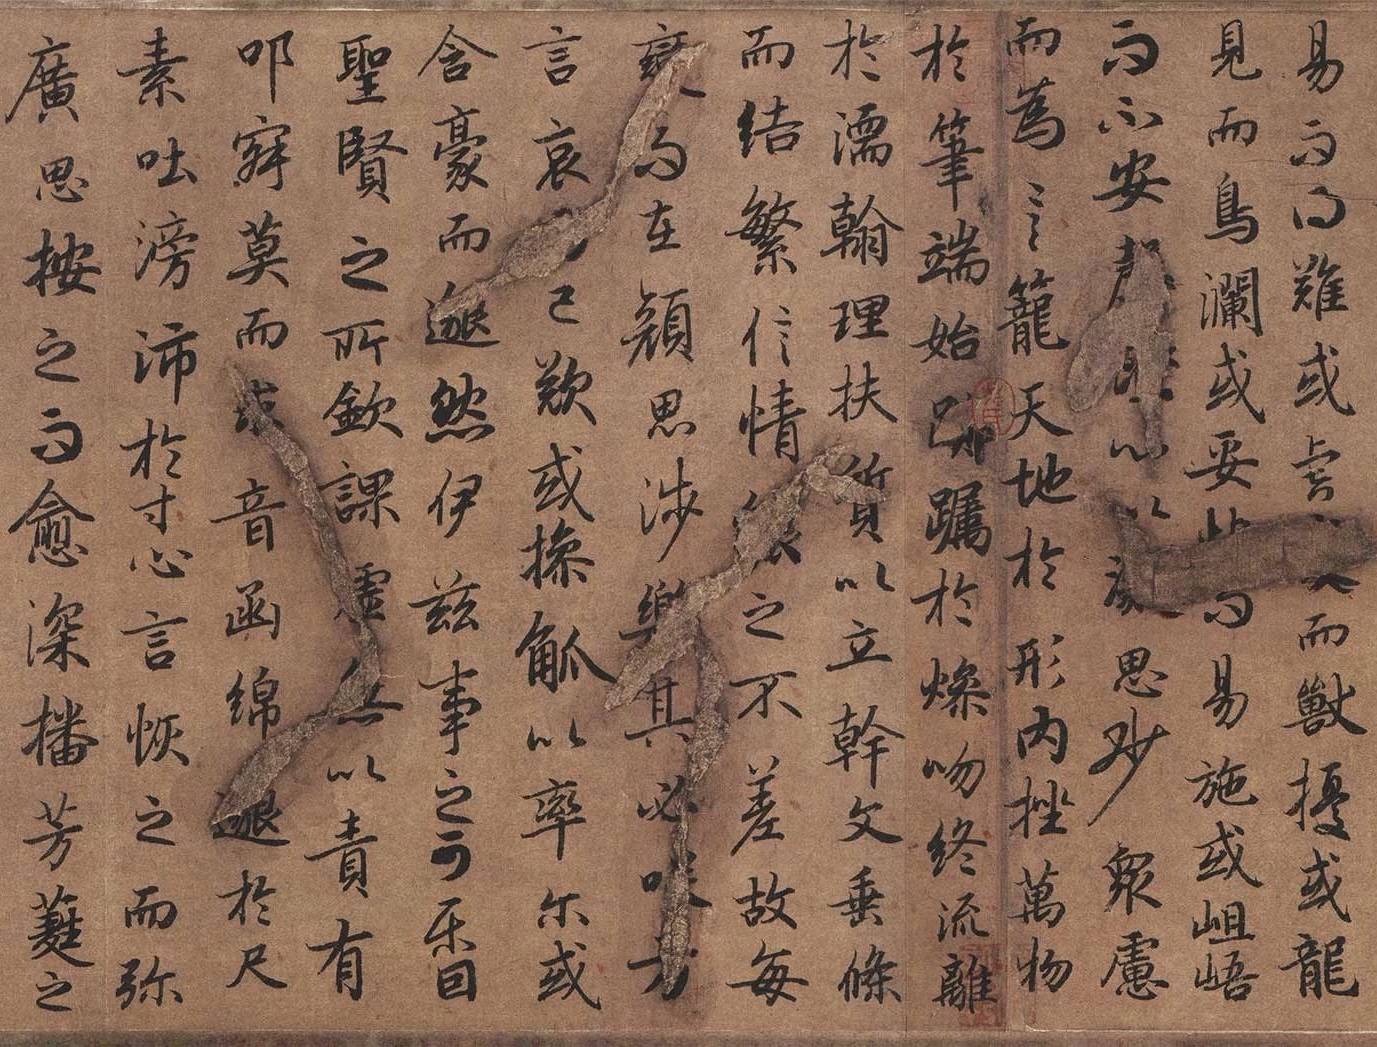 易而得難或虎而獸擾或龍
見而鳥瀾或妥帖而易施或岨峿
而不安心以凝思眇衆慮
而為言籠天地於形內挫萬物
於筆端始躑躅於燥吻終流離
於濡翰理扶質以立幹文垂條
而結繁信情貌之不差故每
變而在顏思涉樂其必咲方
言哀而已歎或操觚以率尓或
含豪而邈然伊茲事之可樂固
聖賢之所欽課虛無以責有
叩寂寞而求音函綿邈於尺
素吐滂沛於寸心言恢之而弥
廣思按之而愈深播芳蕤之